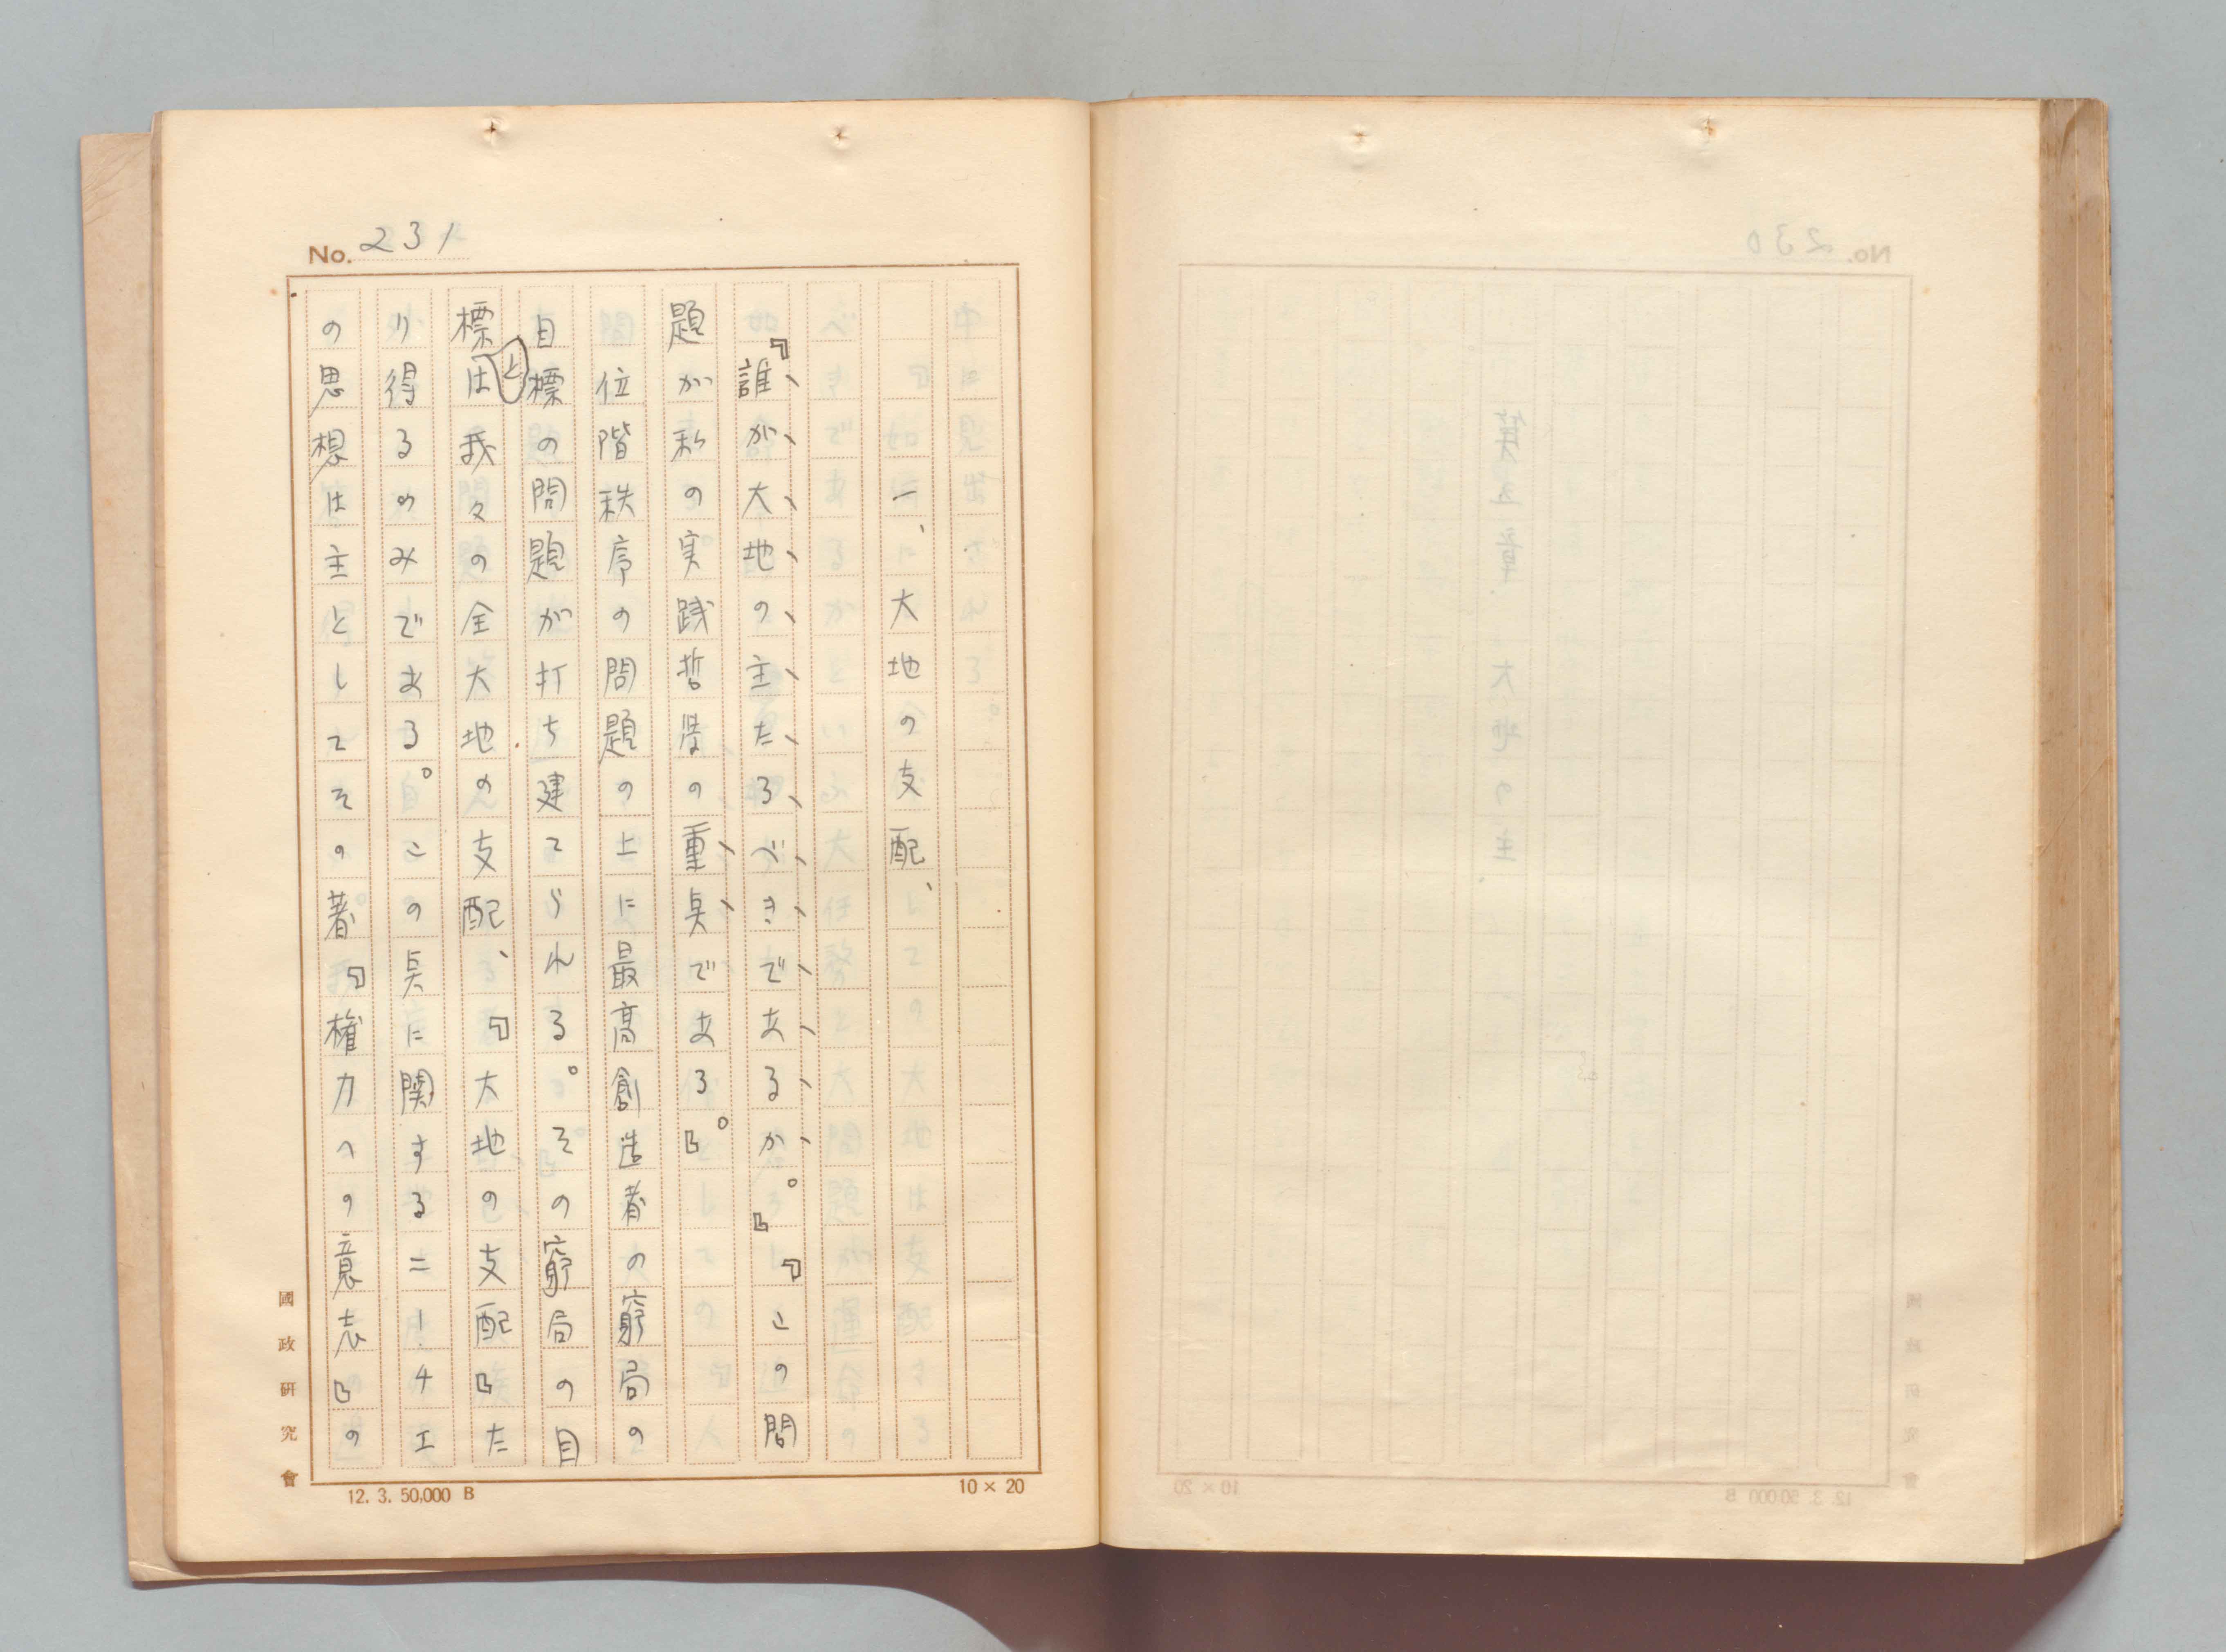 No. 231
一、大地の支配、
『誰が大地の主たるべきであるか。』『この問
題が私の実践哲学の重点である。』
位階秩序の問題の上に最高創造者の窮局の
目標の問題が打ち建てられる。その窮局の目
標は我々の全大地の支配、『大地の支配』た
と
り得るのみである。この点に関するニーチエ
の思想は主としてその著『権力への意志』の
國政研究會
12. 3. 50,000 B
10 × 20
No. 230
第五章 大地の主